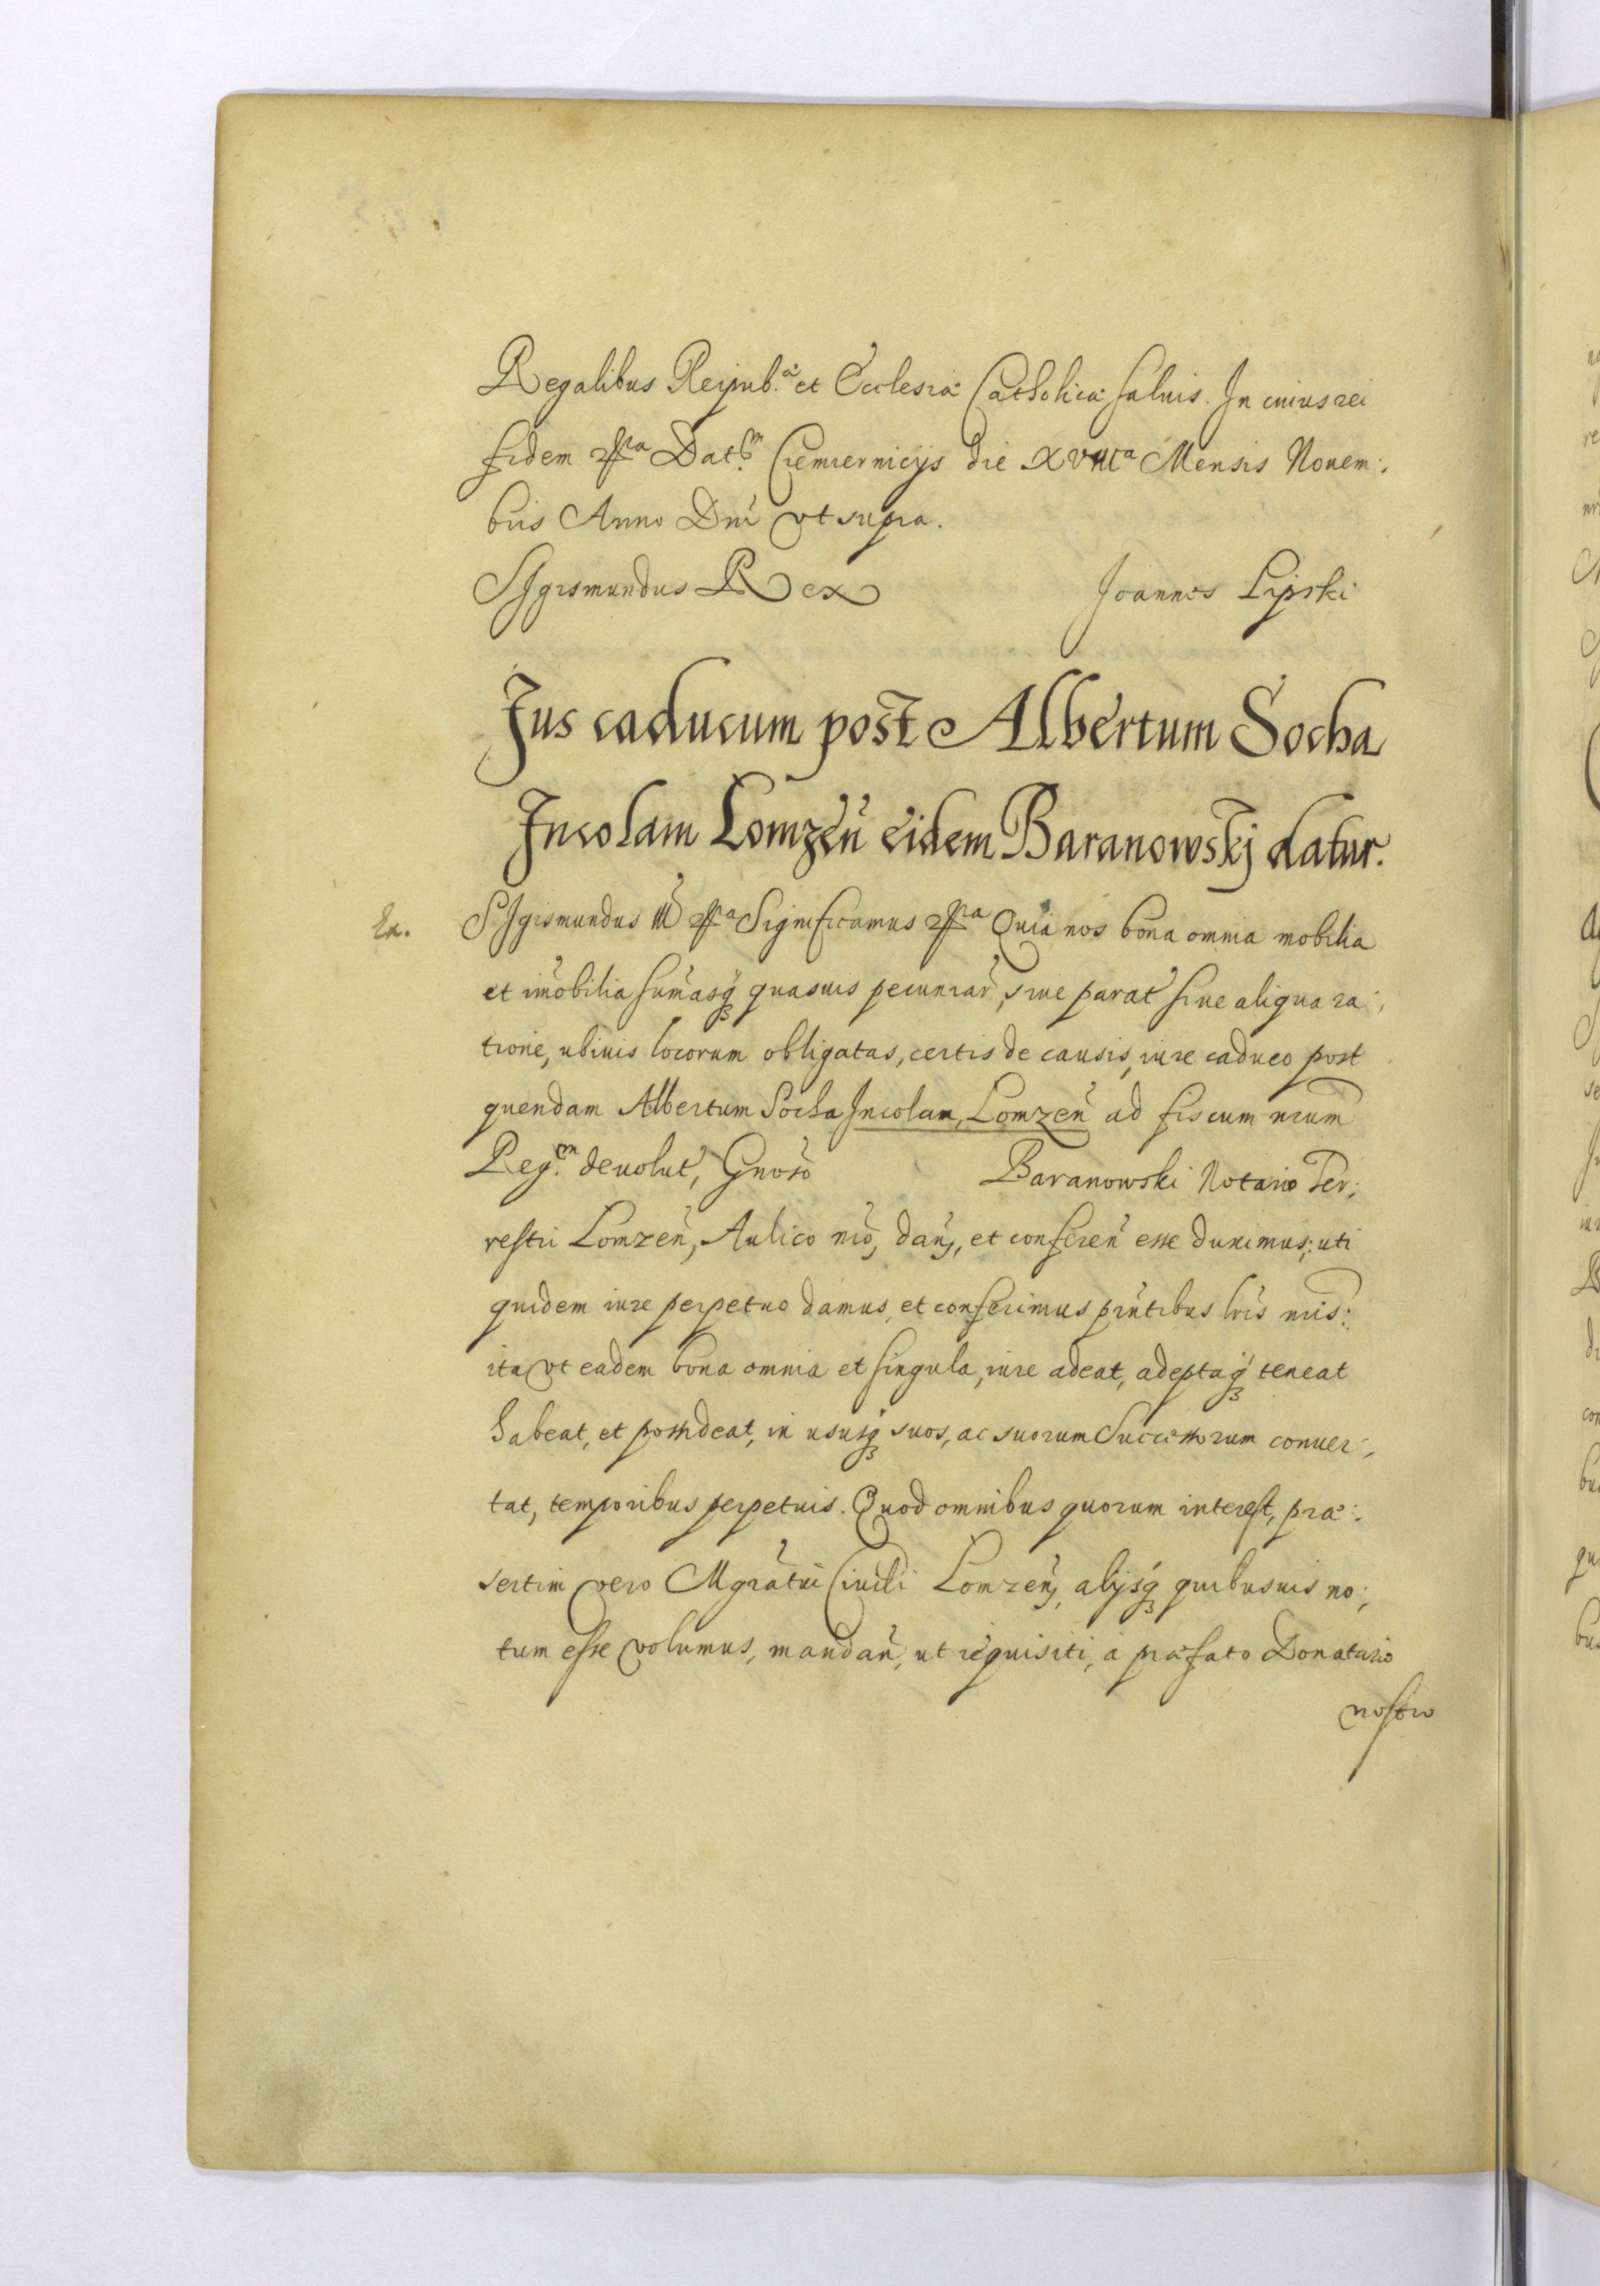 Regalibus Reipub.ᵃᵉ et Ecclesiæ Catholicæ saluis. In cuius rei
fidem Datᵐ. Ciemiernicÿs die XVIIIᵃ Mensis Nouem:
bris Anno Dnĩ vt supra.
SIgismundus Rex Joannes Lipski
Jus caducum post Albertum Socha
Incolam Lomzeñ eidem Baranowskj datur.
Ex. SIgismundus III Significamus Quia nos bona omnia mobilia
et im̃obilia sum̃asq́ꝫ quasuis pecuniar̃, siue parat̃ siue aliqua ra:
tione, ubiuis locorum obligatas, certis de causis, iure caduco post
quendam Albertum Socha Incolam, Lomzeñ ad fiscum nrum
Regᵐ. deuolut̃, Gnoso Baranowski Notario Ter:
restri Lomzeñ, Aulico nrõ, dañ, et confereñ esse duximus: uti
quidem iure perpetuo damus, et conferimus pñtibus lrĩs nris:
ita vt eadem bona omnia et singula, iure adeat, adeptaq́ꝫ teneat
habeat, et possideat, in ususq́ꝫ suos, ac suorum Successorum conuer:
tat, temporibus perpetuis. Quod omnibus quorum interest, præ:
sertim vero Mgratui Ciuili Lomzeñ, alijsq́ꝫ quibusuis no:
tum esse volumus, mandañ, ut requisiti, à præfato Donatario
nostro